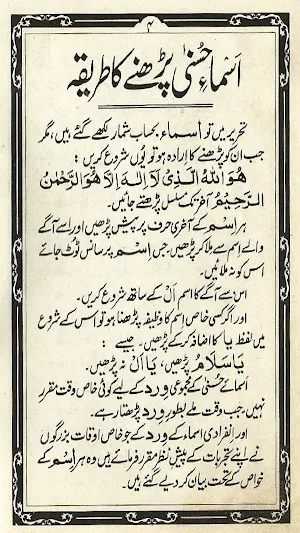 ۴
اَسْماءِ حُسنیٰ پڑھنے کا طریقہ
تحریر میں تو اسماء بحساب شمار لکھے گئے ہیں، مگر
جب ان کو پڑھنے کا ارادہ ہو تو یوں شروع کریں:
هُوَ اللّٰهُ الَّذِیْ لَآ اِلٰهَ اِلَّا هُوَ الرَّحْمٰنُ
الرَّحِیْمُ آخر تک مسلسل پڑھتے جائیں۔
ہر اسم کے آخری حرف پر پیش پڑھیں اور اسے آگے
والے اسم سے ملا کر پڑھیں، جس اسم پر سانس ٹوٹ جائے
اس کو نہ ملائیں۔
اس سے آگے کا اسم اَلْ کے ساتھ شروع کریں۔
اور اگر کسی خاص اسم کا وظیفہ پڑھنا ہو تو اس کے شروع
میں لفظ یا کا اضافہ کر کے پڑھیں۔ جیسے:
یَا سَلَامُ پڑھیں، یَا اَلْ نہ پڑھیں۔
اسمائے حسنیٰ کے مجموعی ورد کے لیے کوئی خاص وقت مقرر
نہیں، جب وقت ملے بطور ورد پڑھتا رہے۔
اور انفرادی اسماء کے ورد کے جو خاص اوقات بزرگوں
نے اپنے تجربات کے پیش نظر مقرر فرمائے ہیں وہ ہر اسم کے
خواص کے تحت بیان کر دیے گئے ہیں۔